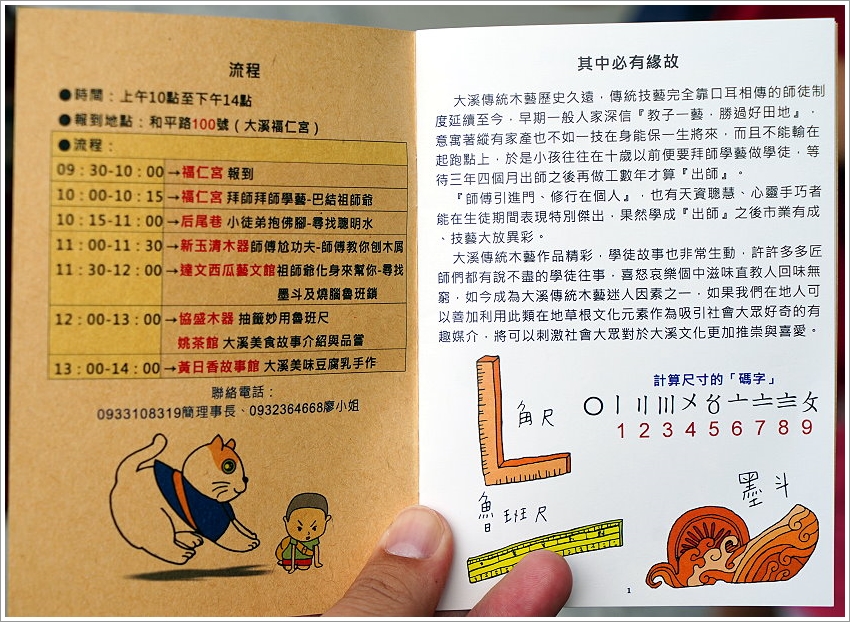 流程
●時間：上午10點至下午14點
●報到地點：和平路100號（大溪福仁宮）
●流程：
09：30-10：00→福仁宮 報到
10：00-10：15→福仁宮 拜師拜師學藝-巴結祖師爺
10：15-11：00→后尾巷 小徒弟抱佛腳-尋找聰明水
11：00-11：30→新玉清木器師傅尬功夫-師傅教你刨木屑
11：30-12：00→達文西瓜藝文館祖師爺化身來幫你-尋找
墨斗及燒腦魯班鎖
12：00-13：00→協盛木器 抽籤妙用魯班尺
姚茶館 大溪美食故事介紹與品嘗
13：00-14：00→黃日香故事館 大溪美味豆腐乳手作
聯絡電話：
0933108319簡理事長、0932364668廖小姐
其中必有緣故
大溪傳統木藝歷史久遠，傳統技藝完全靠口耳相傳的師徒制
度延續至今，早期一般人家深信『教子一藝，勝過好田地』，
意寓著縱有家產也不如一技在身能保一生將來，而且不能輸在
起跑點上，於是小孩往往在十歲以前便要拜師學藝做學徒，等
待三年四個月出師之後再做工數年才算『出師』。
『師傅引進門、修行在個人』，也有天資聰慧、心靈手巧者
能在生徒期間表現特別傑出，果然學成『出師』之後市業有成
、技藝大放異彩。
大溪傳統木藝作品精彩，學徒故事也非常生動，許許多多匠
師們都有說不盡的學徒往事，喜怒哀樂個中滋味直教人回味無
窮，如今成為大溪傳統木藝迷人因素之一，如果我們在地人可
以善加利用此類在地草根文化元素作為吸引社會大眾好奇的有
趣媒介，將可以刺激社會大眾對於大溪文化更加推崇與喜愛。
計算尺寸的「碼字」
〇〡〢〣〤〥〦〧〨〩
1 2 3 4 5 6 7 8 9
角尺
魯班尺
墨斗
1